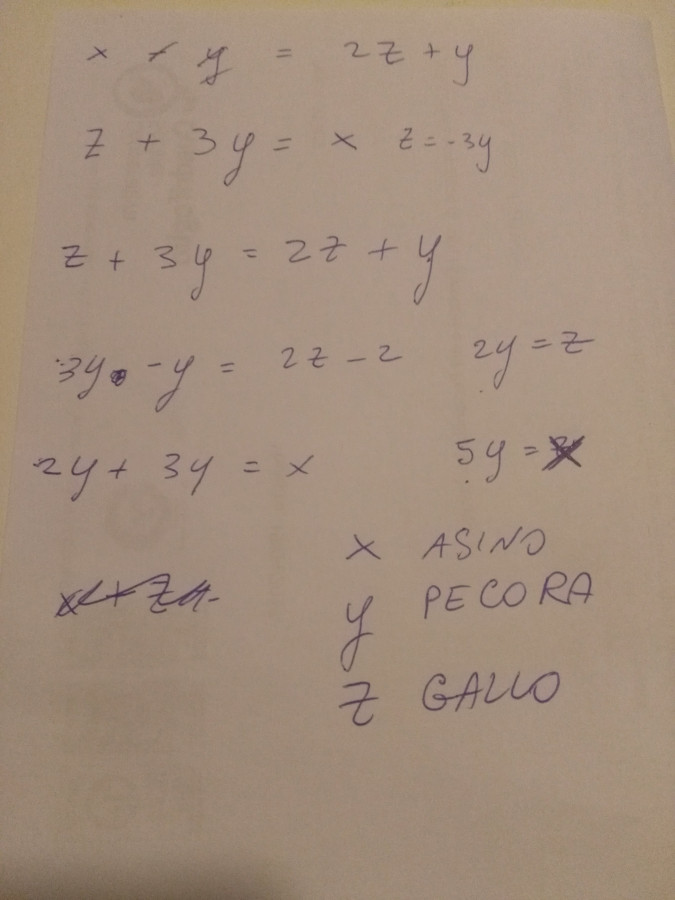 x - y = 2z + y
z + 3y = x z = -3y
z + 3y = 2z + y
3y - y = 2z - 2 2y = z
2y + 3y = x 5y = x
x ASINO
y PECORA
z GALLO